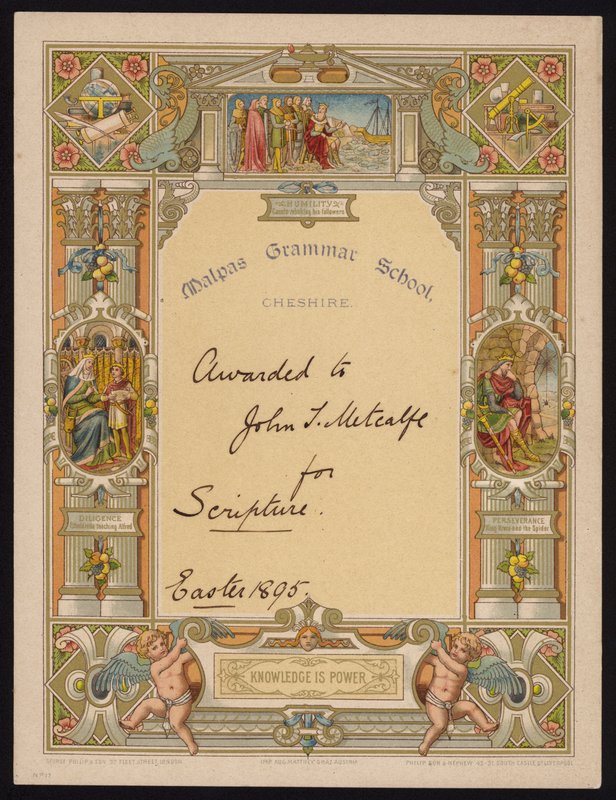 HUMILITY
Canute rebuking his followers
Malpas Grammar School,
CHESHIRE.
Awarded to
John T. Metcalfe
for
Scripture.
Easter 1895.
DILIGENCE
teaching Alfred
PERSEVERANCE
King Bruce and the Spider
KNOWLEDGE IS POWER
GEORGE PHILIP & SON 32 FLEET STREET, LONDON
GRAZ, AUSTRIA
PHILIP SON & NEPHEW 45-51 SOUTH CASTLE ST LIVERPOOL